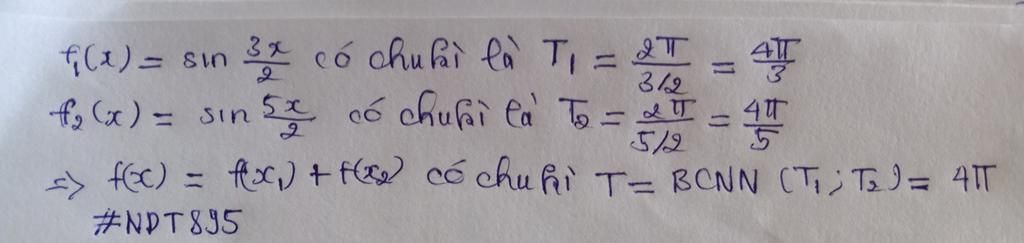 f₁(x) = sin 3x/2 có chu kì là T₁ = 2π/(3/2) = 4π/3
f₂(x) = sin 5x/2 có chu kì là T₂ = 2π/(5/2) = 4π/5
=> f(x) = f(x₁) + f(x₂) có chu kì T = BCNN (T₁; T₂) = 4π
#NDT895